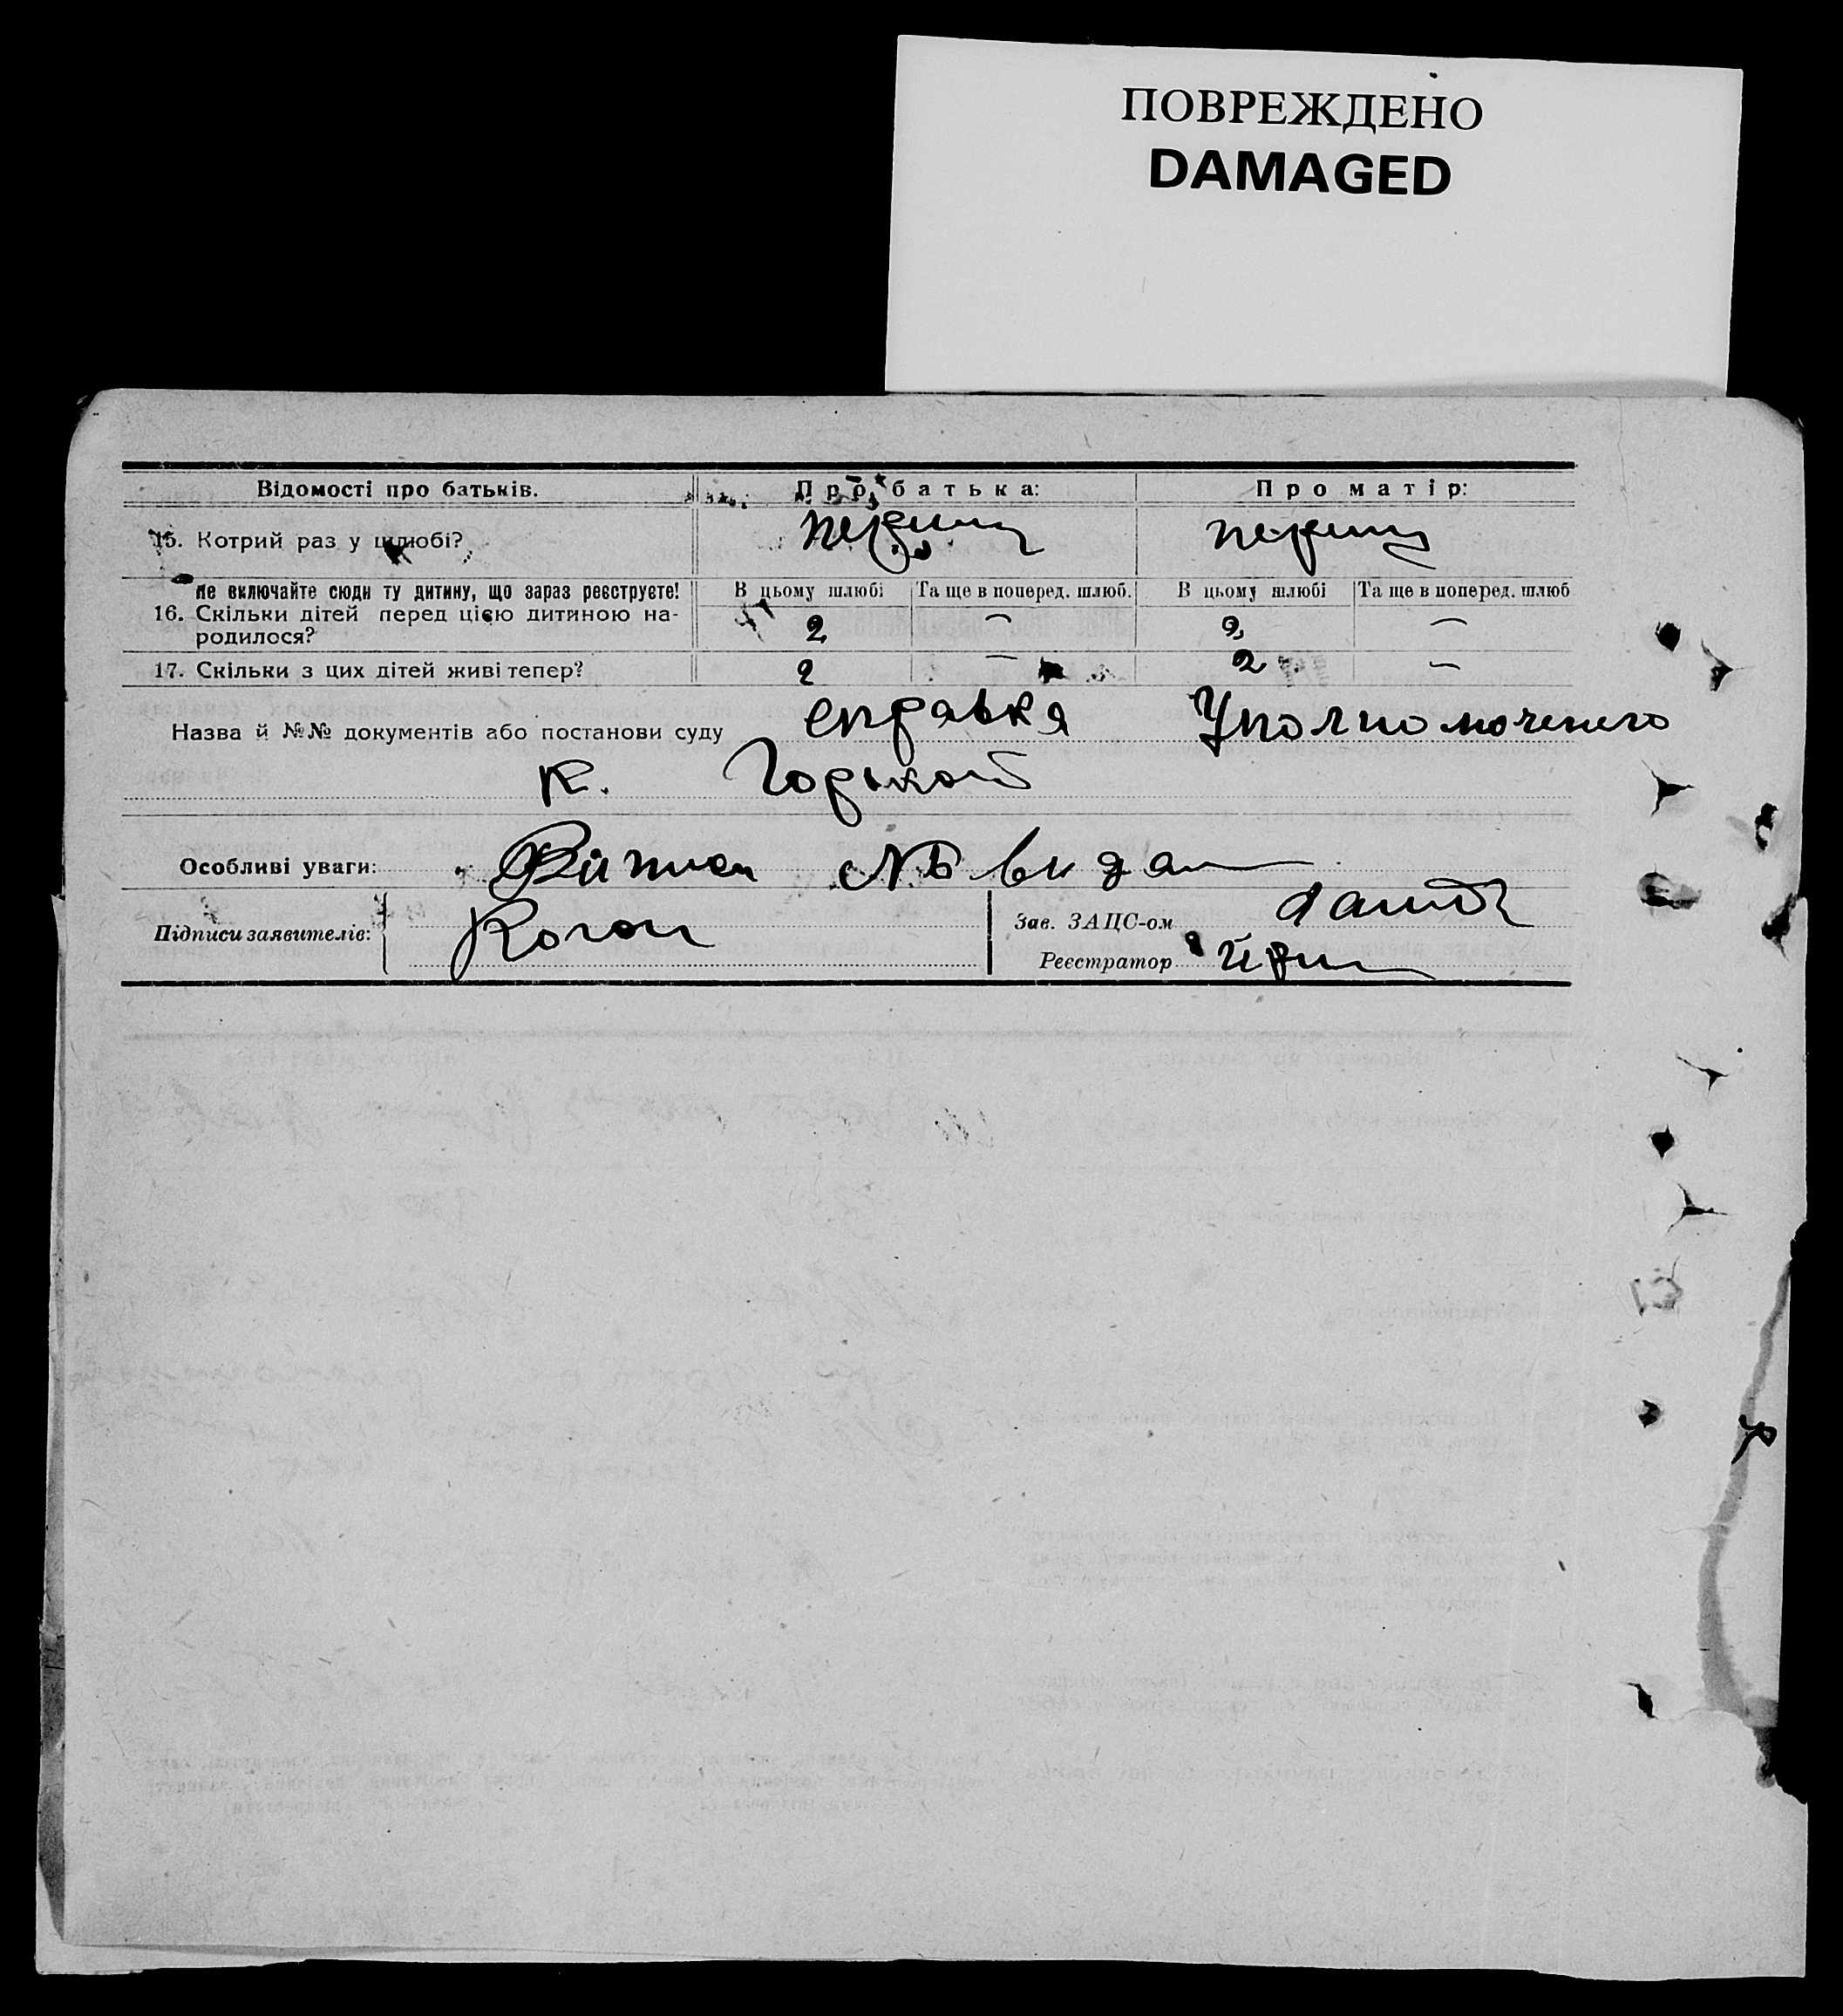 ПОВРЕЖДЕНО
DAMAGED
Відомості про батьків. Про батька: Про матір:
15. Котрий раз у шлюбі? перший перший
Не включайте сюди ту дитину, що зараз реєструєте! В цьому шлюбі Та ще в поперед. шлюб. В цьому шлюбі Та ще в поперед. шлюб
16. Скільки дітей перед цією дитиною на-
родилося? 2 — 2 —
17. Скільки з цих дітей живі тепер? 2 — 2 —
Назва й №№ документів або постанови суду справка Уполномоченого
к. Горької
Особливі уваги: №
Підписи заявителів: Коган Зав. ЗАЦС-ом
Реєстратор